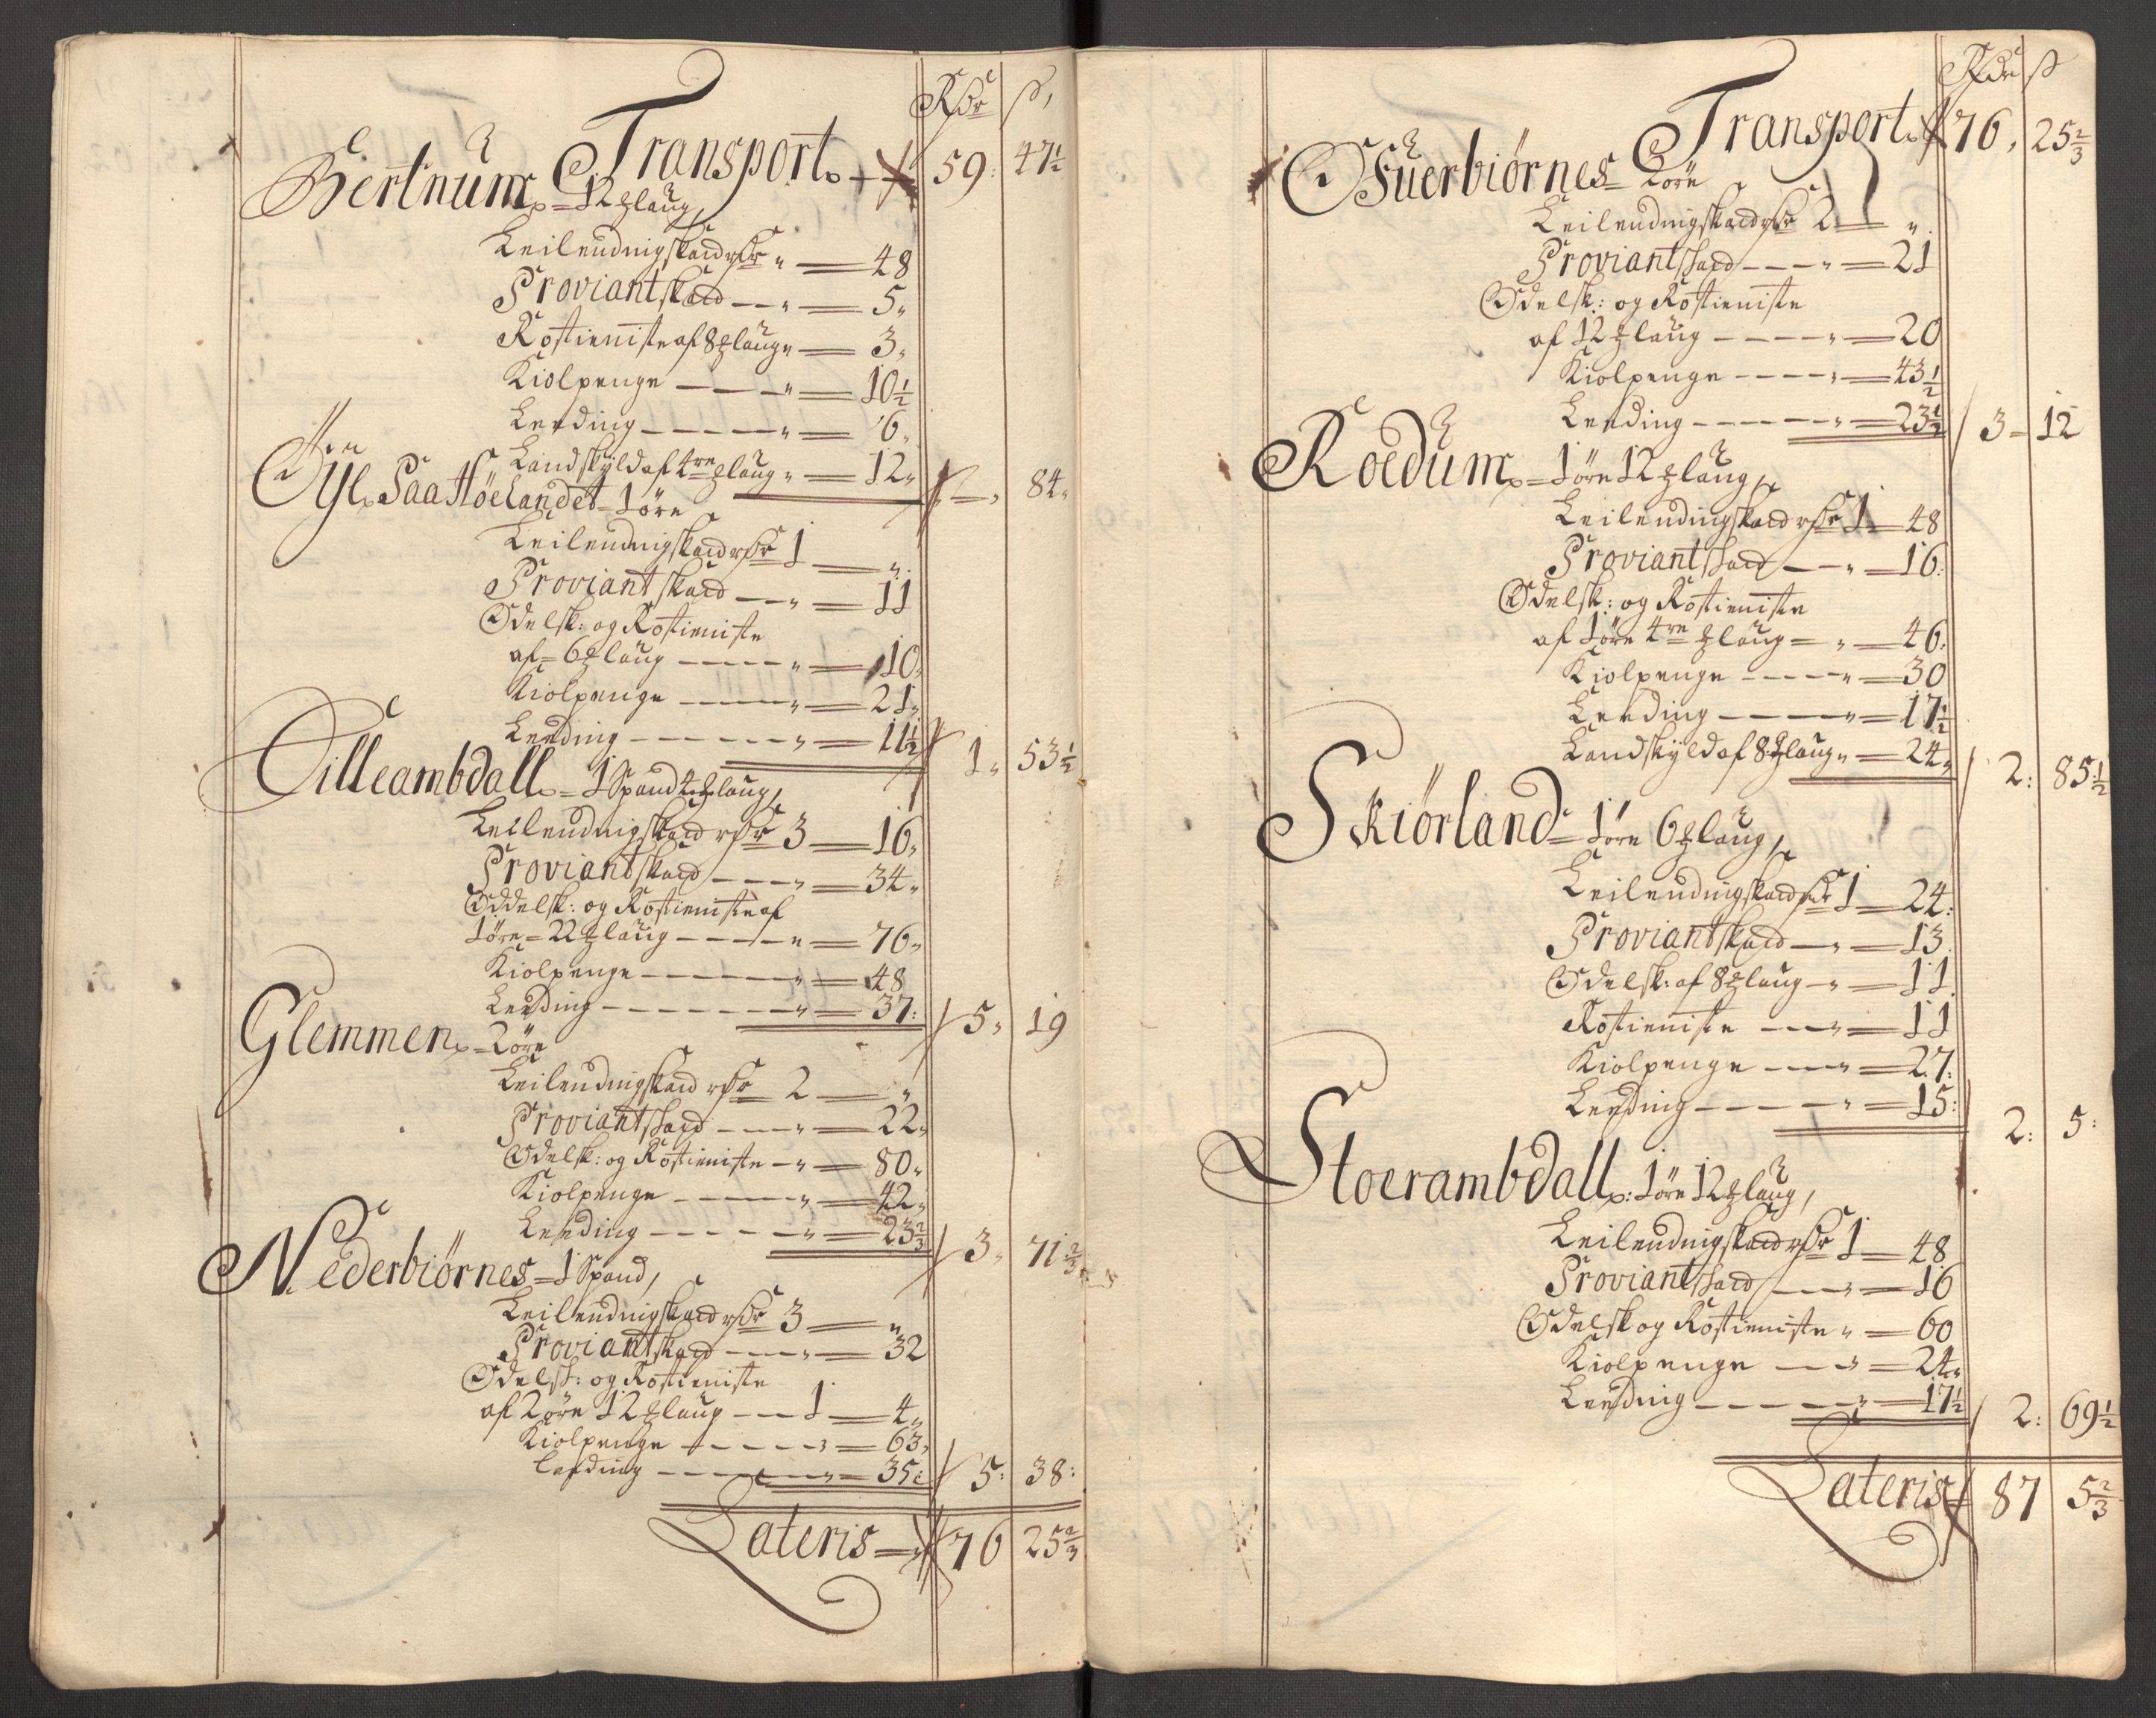 Rdr ß
Transport 59: 47½
Bertnum 12 ꝑlaug
Leilendingskaad rdr „ 48
Proviantskaad „ 5„
Rostieniste af 8 ꝑlaug „ 3„
Kiolpenge „ 10½
Leeding „ 6„
Landskyld af 4re ꝑlaug „ 12„ — 84„
Øyl. Paa Høelandet 1 øre
Leilendingskaad rdr 1 „
Proviantskaad „ 11
Odelsk: og Rostieniste
af 6 ꝑlaug „ 10„
Kiolpenge „ 21„
Leeding „ 11½ 1„ 53½
Lilleambdall 1 Spand 4 ꝑlaug,
Leilendingskaad rdr 3 16„
Proviantskaad „ 34„
Oddelsk: og Rostieniste af
1 øre 22 ꝑlaug „ 76„
Kiolpenge „ 48
Leeding „ 37: 5„ 19
Glemmen 2 øre
Leilendingskaad rdr 2 „
Proviantskaad „ 22„
Odelsk: og Rostieniste „ 80„
Kiolpenge „ 42„
Leeding „ 23⅔ 3„ 71⅔
Nederbiørnes 1 Spand,
Leilendingskaad rdr 3 „
Proviantskaad „ 32
Odelsk: og Rostieniste
af 2 øre 12 ꝑlaug 1 4„
Kiolpenge „ 63„
Leeding „ 35: 5: 38:
Lateris 76 25⅔
Rdr ß
Transport 76, 25⅔
Øfuerbiørnes 2 øre
Leilendingskaad rdr 2 „
Proviantskaad „ 21
Odelsk: og Rostieniste
af 12 ꝑlaug „ 20
Kiolpenge „ 43½
Leeding „ 23½ 3 12
Roedum 1 øre 12 ꝑlaug
Leilendingskaad rdr 1 48
Proviantskaad „ 16:
Odelsk: og Rostieniste
af 1 øre 4re ꝑlaug „ 46:
Kiolpenge „ 30
Leeding „ 17½
Landskyld af 8 ꝑlaug „ 24„ 2: 85½
Skiørland 1 øre 6 ꝑlaug,
Leilendingskaad rdr 1 24:
Proviantskaad „ 13
Odelsk: af 8 ꝑlaug „ 11
Rostieniste „ 11
Kiolpenge „ 27:
Leeding „ 15: 2: 5:
Stoerambdall: 1 øre 12 ꝑlaug,
Leilendingskaad rdr 1 48
Proviantskaad „ 16
Odelsk og Rostieniste „ 60
Kiolpenge „ 24„
Leeding „ 17½ 2: 69½
Lateris 87 5⅔